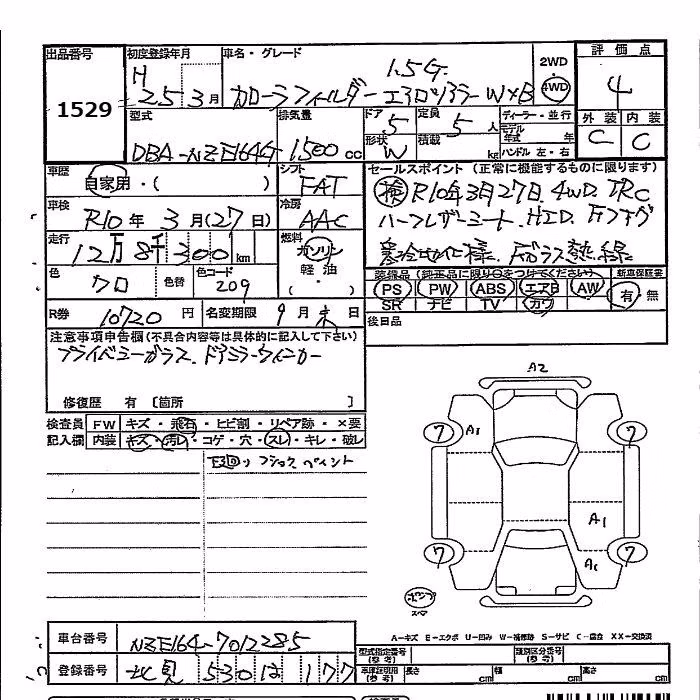 出品番号 1529
初度登録年月 H 25 3月
車名・グレード 1.5G カローラフィルダー エアロツアラー W×B
2WD 4WD
評価点 4
外装 内装
C C
型式 DBA-NZE164G
排気量 1500 cc
ドア 5 定員 5 人
形状 W 積載 kg
ディーラー・並行
モデル年式 年
ハンドル 左・右
車歴 自家用・( )
シフト FAT
車検 R10年 3月(27日)
冷房 AAC
走行 12万8千300km
燃料 ガソリン 軽油 ・( )
色 クロ 色替 色コード 209
R券 10720 円 名変期限 9月末日
セールスポイント(正常に機能するものに限ります)
検 R10年3月27日. 4WD. TRC
ハーフレザーシート. HID. Fフォグ
寒冷地仕様. Fガラス熱線
装備品(純正品に限り○をつけてください) 新車保証書
PS PW ABS エアB AW 有・無
SR ナビ TV カワ
後日品
注意事項申告欄(不具合内容等は具体的に記入して下さい)
プライバシーガラス. ドアミラーウィンカー
修復歴 有〔箇所 〕
検査員 FW キズ・飛石・ヒビ割・リペア跡・×要
記入欄 内装 キズ・汚レ・コゲ・穴・スレ・キレ・破レ
下廻り フラックペイント
A2
7 A1 7
A1
7 A1 7
ポンプ
スペア
A-キズ E-エクボ U-凹み W-補修跡 S-サビ C-腐食 XX-交換済
車台番号 NZE164-7012285
型式指定番号(参考) 類別区分番号(参考)
登録番号 北見 530 は 177
長さ cm 幅 cm 高さ cm